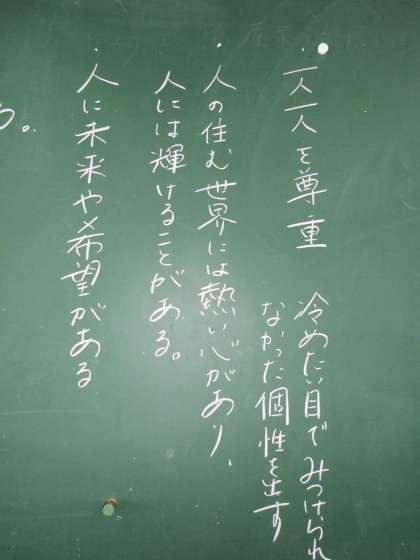 ・一人一人を尊重
冷めたい目でみつけられ
なかった個性を出す
・人の住む世界には熱い心があり、
人には輝けることがある。
・人に未来や希望がある
う。